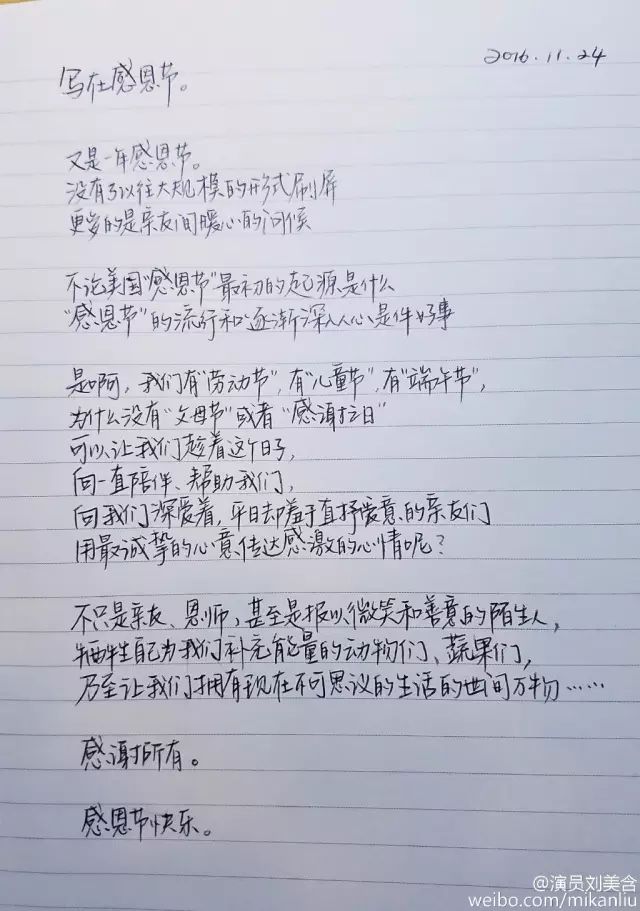 2016.11.24
写在感恩节。
又是一年感恩节。
没有了以往大规模的形式刷屏
更多的是亲友间暖心的问候
不论美国"感恩节"最初的起源是什么
"感恩节"的流行和逐渐深入人心是件好事
是啊，我们有"劳动节"，有"儿童节"，有"端午节"，
为什么没有"父母节"或者"感谢拉日"
可以让我们趁着这个日子，
向一直陪伴、帮助我们，
向我们深爱着，平日却羞于直抒爱意的亲友们
用最诚挚的心意传达感激的心情呢？
不只是亲友、恩师，甚至是报以微笑和善意的陌生人，
牺牲自己为我们补充能量的动物们、蔬果们，
乃至让我们拥有现在不可思议的生活的世间万物……
感谢所有。
感恩节快乐。
@演员刘美含
weibo.com/mikanliu